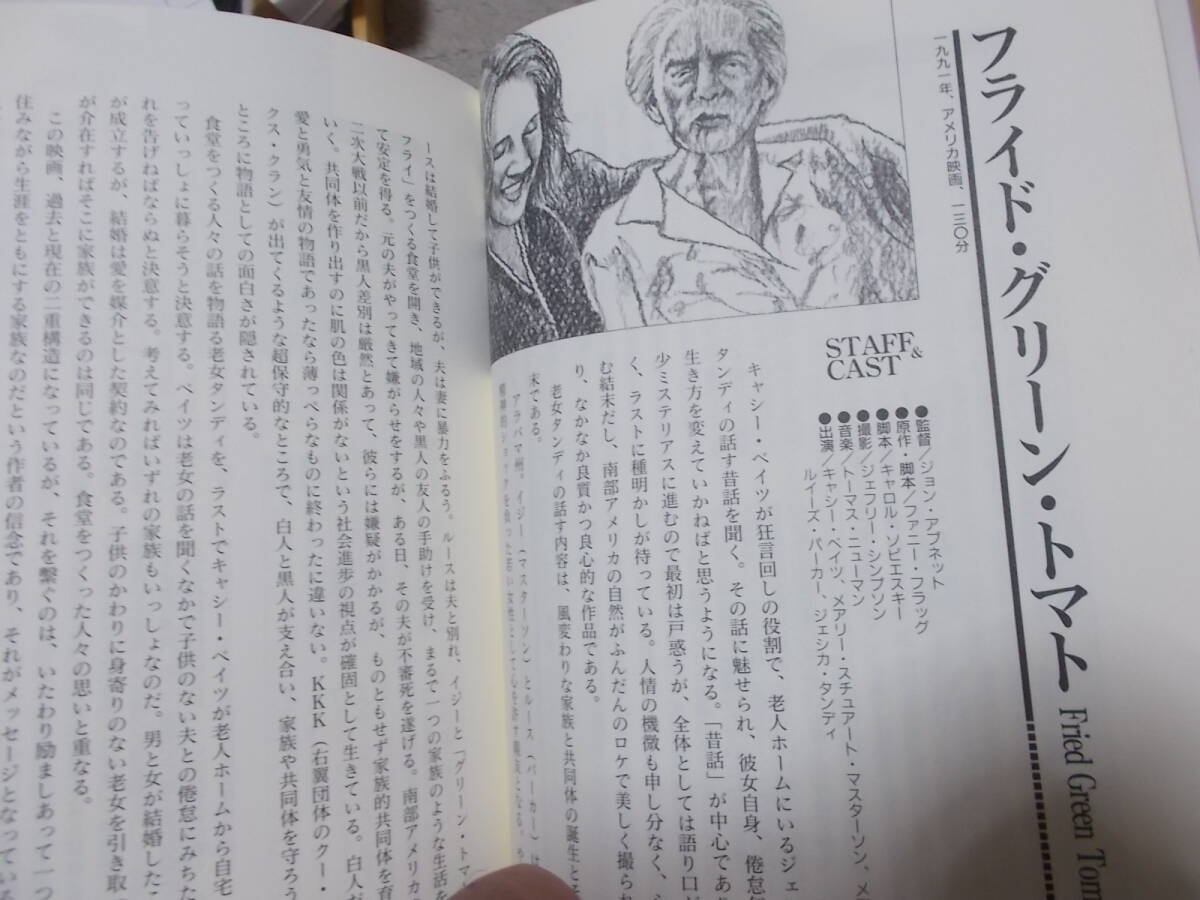 フライド・グリーン・トマト Fried Green Tom
一九九一年、アメリカ映画、一三〇分
STAFF & CAST
●監督/ジョン・アブネット
●原作・脚本/ファニー・フラッグ
●脚本/キャロル・ソビエスキー
●撮影/ジェフリー・シンプソン
●音楽/トーマス・ニューマン
●出演/キャシー・ベイツ、メアリー・スチュアート・マスターソン、メ
ルイーズ・パーカー、ジェシカ・タンディ
キャシー・ベイツが狂言回しの役割で、老人ホームにいるジェ
タンディの話す昔話を聞く。その話に魅せられ、彼女自身、倦怠
生き方を変えていかねばと思うようになる。「昔話」が中心であ
少ミステリアスに進むので最初は戸惑うが、全体としては語り口
く、ラストに種明かしが待っている。人情の機微も申し分なく、
む結末だし、南部アメリカの自然がふんだんのロケで美しく撮ら
り、なかなか良質かつ良心的な作品である。
老女タンディの話す内容は、風変わりな家族と共同体の誕生と
末である。
アラバマ州。イジー(マスターソン)とルース(パーカー)は
ースは結婚して子供ができるが、夫は妻に暴力をふるう。ルースは夫と別れ、イジーと「グリーン・トマ
フライ」をつくる食堂を開き、地域の人々や黒人の友人の手助けを受け、まるで一つの家族のような生活を
て安定を得る。元の夫がやってきて嫌がらせをするが、ある日、その夫が不審死を遂げる。南部アメリカ
二次大戦以前だから黒人差別は厳然とあって、彼らには嫌疑がかかるが、ものともせず家族的共同体を育
いく。共同体を作り出すのに肌の色は関係がないという社会進歩の視点が確固として生きている。白人だ
愛と勇気と友情の物語であったなら薄っぺらなものに終わったに違いない。KKK(右翼団体のクー・
クス・クラン)が出てくるような超保守的なところで、白人と黒人が支え合い、家族や共同体を守ろう
ところに物語としての面白さが隠されている。
食堂をつくる人々の話を物語る老女タンディを、ラストでキャシー・ベイツが老人ホームから自宅
っていっしょに暮らそうと決意する。ベイツは老女の話を聞くなかで子供のない夫との倦怠にみちた
れを告げねばならぬと決意する。考えてみればいずれの家族もいっしょなのだ。男と女が結婚したこ
が成立するが、結婚は愛を媒介とした契約なのである。子供のかわりに身寄りのない老女を引き取
が介在すればそこに家族ができるのは同じである。食堂をつくった人々の思いと重なる。
この映画、過去と現在の二重構造になっているが、それを繋ぐのは、いたわり励ましあって一つ
住みながら生涯をともにする家族なのだという作者の信念であり、それがメッセージとなっている